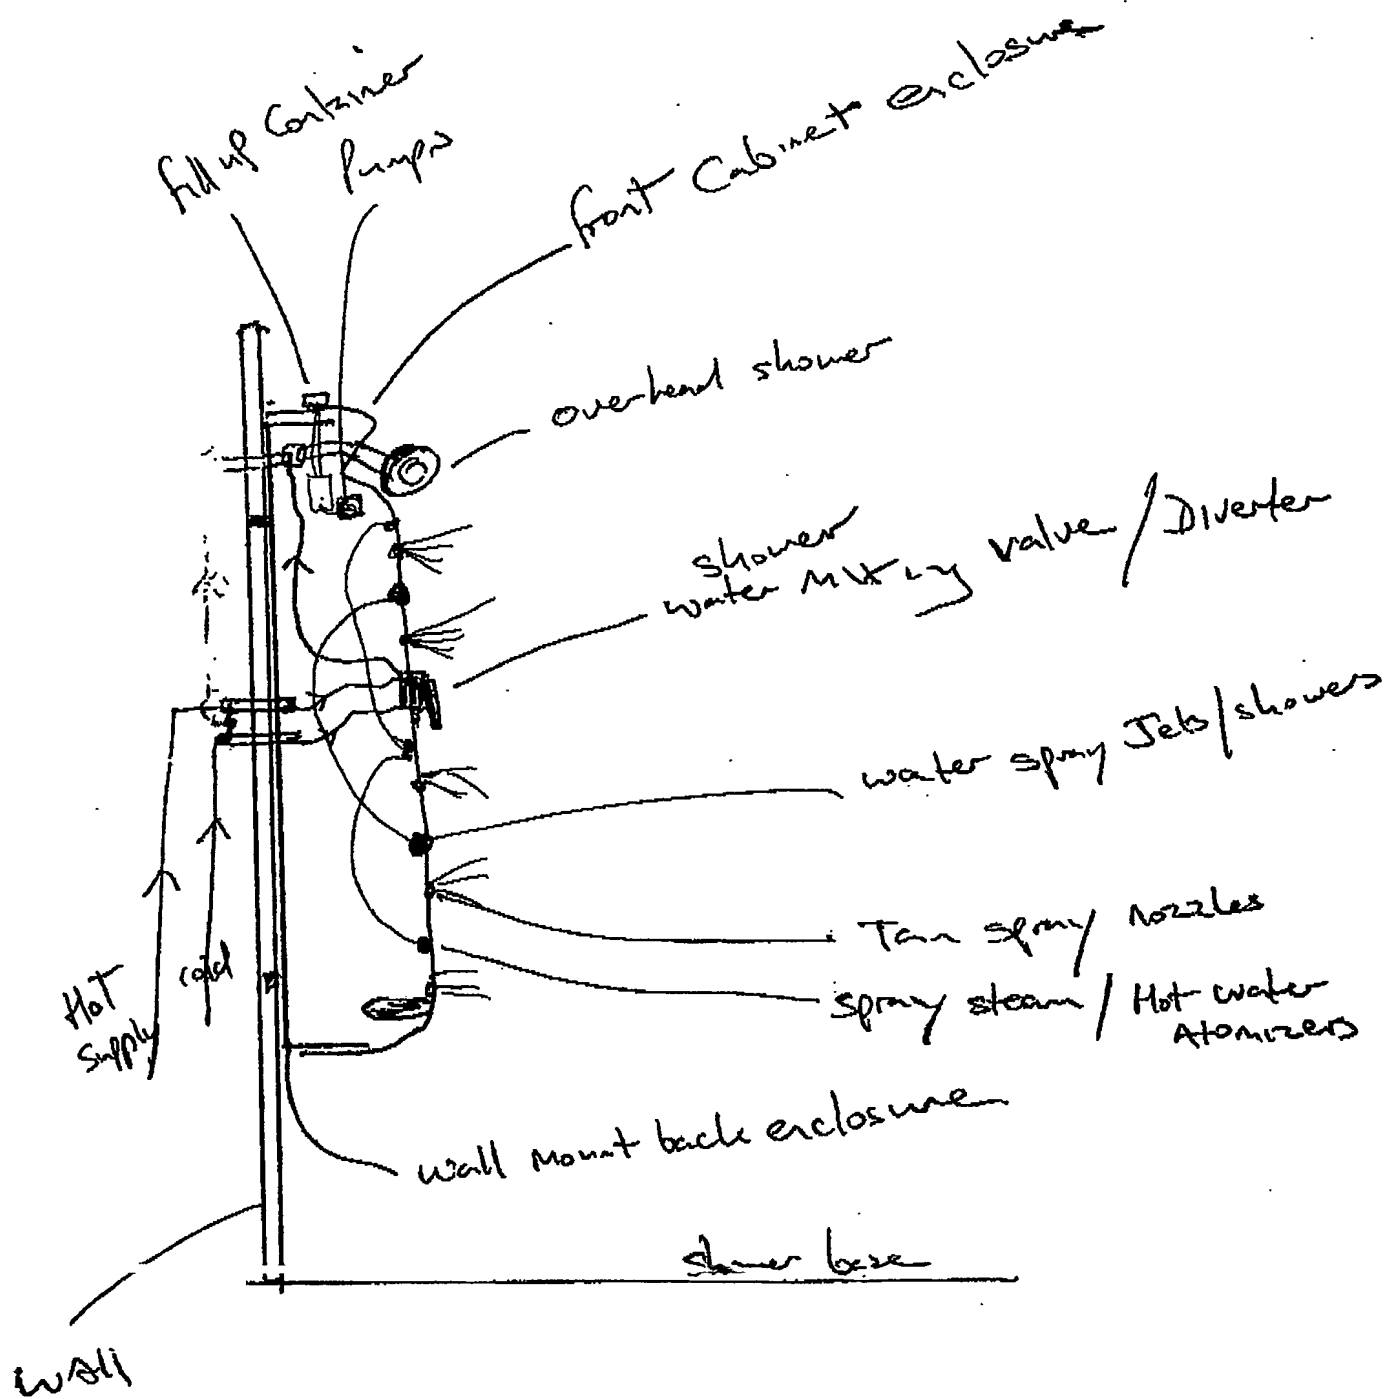 fill up Container
Pumps
front Cabinet enclosure
overhead shower
shower
water Mixing valve / Diverter
water spray Jets/showers
Tan spray nozzles
spray steam / Hot water
Atomizers
Hot
supply
cold
wall mount back enclosure
shower base
WAll